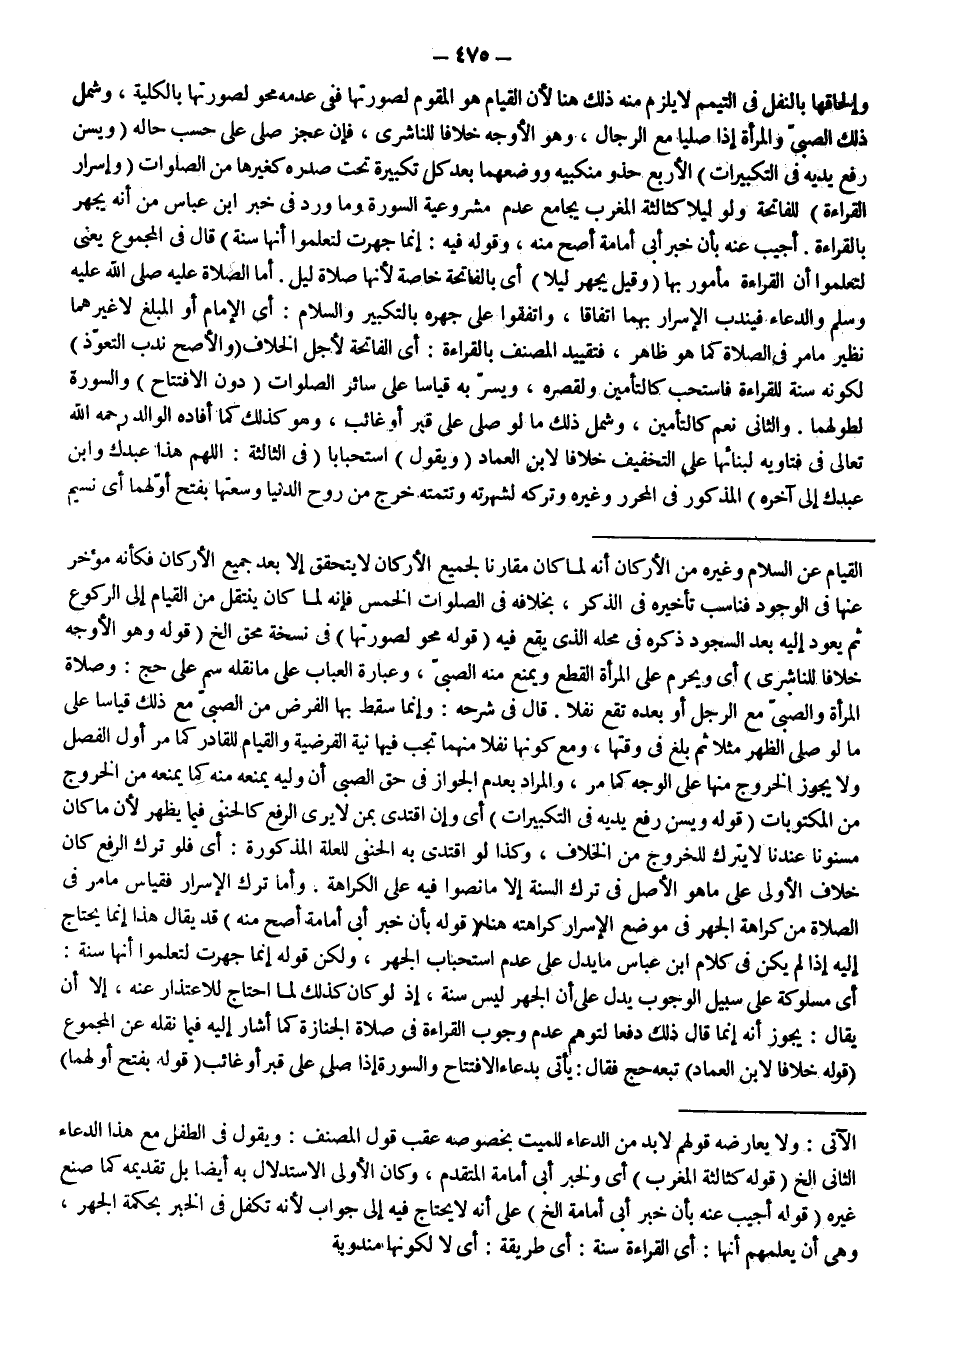 – ٤٧٥ –
وإلحاقها بالنفل فى التيمم لايلزم منه ذلك هنا لأن القيام هو المقوم لصورتها ففى عدمه محو لصورتها بالكلية ، وشمل
ذلك الصبىّ والمرأة إذا صليا مع الرجال ، وهو الأوجه خلافا للناشرى ، فإن عجز صلى على حسب حاله ( ويسن
رفع يديه فى التكبيرات ) الأربع حذو منكبيه ووضعهما بعد كل تكبيرة تحت صدره كغيرها من الصلوات ( وإسرار
القراءة ) للفاتحة ولو ليلا كثالثة المغرب بجامع عدم مشروعية السورة وما ورد فى خبر ابن عباس من أنه يجهر
بالقراءة . أجيب عنه بأن خبر أبى أمامة أصح منه ، وقوله فيه : إنما جهرت لتعلموا أنها سنة ) قال فى المجموع يعنى
لتعلموا أن القراءة مأمور بها ( وقيل يجهر ليلا ) أى بالفاتحة خاصة لأنها صلاة ليل . أما الصلاة عليه صلى الله عليه
وسلم والدعاء فيندب الإسرار بهما اتفاقا ، واتفقوا على جهره بالتكبير والسلام : أى الإمام أو المبلغ لاغيرهما
نظير مامر فى الصلاة كما هو ظاهر ، فتقييد المصنف بالقراءة : أى الفاتحة لأجل الخلاف (والأصح ندب التعوّذ )
لكونه سنة للقراءة فاستحب كالتأمين ولقصره ، ويسرّ به قياسا على سائر الصلوات ( دون الافتتاح ) والسورة
لطولهما . والثانى نعم كالتأمين ، وشمل ذلك ما لو صلى على قبر أو غائب ، وهو كذلك كما أفاده الوالد رحمه الله
تعالى فى فتاويه لبنائها على التخفيف خلافا لابن العماد ( ويقول ) استحبابا ( فى الثالثة : اللهم هذا عبدك وابن
عبدك إلى آخره ) المذكور فى المحرر وغيره وتركه لشهرته وتتمته خرج من روح الدنيا وسعتها بفتح أوّلهما أى نسيم
القيام عن السلام وغيره من الأركان أنه لما كان مقارنا لجميع الأركان لايتحقق إلا بعد جميع الأركان فكأنه مؤخر
عنها فى الوجود فناسب تأخيره فى الذكر ، بخلافه فى الصلوات الخمس فإنه لما كان ينتقل من القيام إلى الركوع
ثم يعود إليه بعد السجود ذكره فى محله الذى يقع فيه ( قوله محو لصورتها ) فى نسخة محق الخ ( قوله وهو الأوجه
خلافا للناشرى ) أى ويحرم على المرأة القطع ويمنع منه الصبىّ ، وعبارة العباب على مانقله سم على حج : وصلاة
المرأة والصبىّ مع الرجل أو بعده تقع نفلا . قال فى شرحه : وإنما سقط بها الفرض من الصبىّ مع ذلك قياسا على
ما لو صلى الظهر مثلا ثم بلغ فى وقتها ، ومع كونها نفلا منهما تجب فيها نية الفرضية والقيام للقادر كما مر أول الفصل
ولا يجوز الخروج منها على الوجه كما مر ، والمراد بعدم الجواز فى حق الصبى أن وليه يمنعه منه كما يمنعه من الخروج
من المكتوبات ( قوله ويسن رفع يديه فى التكبيرات ) أى وإن اقتدى بمن لايرى الرفع كالحنفى فيما يظهر لأن ماكان
مسنونا عندنا لايترك للخروج من الخلاف ، وكذا لو اقتدى به الحنفى للعلة المذكورة : أى فلو ترك الرفع كان
خلاف الأولى على ماهو الأصل فى ترك السنة إلا مانصوا فيه على الكراهة . وأما ترك الإسرار فقياس مامر فى
الصلاة من كراهة الجهر فى موضع الإسرار كراهته هنا ( قوله بأن خبر أبى أمامة أصح منه ) قد يقال هذا إنما يحتاج
إليه إذا لم يكن فى كلام ابن عباس مايدل على عدم استحباب الجهر ، ولكن قوله إنما جهرت لتعلموا أنها سنة :
أى مسلوكة على سبيل الوجوب يدل على أن الجهر ليس سنة ، إذ لو كان كذلك لما احتاج للاعتذار عنه ، إلا أن
يقال : يجوز أنه إنما قال ذلك دفعا لتوهم عدم وجوب القراءة فى صلاة الجنازة كما أشار إليه فيما نقله عن المجموع
(قوله خلافا لابن العماد) تبعه حج فقال : يأتى بدعاء الافتتاح والسورة إذا صلى على قبر أو غائب ( قوله بفتح أولهما)
الآتى : ولا يعارضه قولهم لابد من الدعاء للميت بخصوصه عقب قول المصنف : ويقول فى الطفل مع هذا الدعاء
الثانى الخ ( قوله كثالثة المغرب ) أى ولخبر أبى أمامة المتقدم ، وكان الأولى الاستدلال به أيضا بل تقديمه كما صنع
غيره ( قوله أجيب عنه بأن خبر أبى أمامة الخ ) على أنه لايحتاج فيه إلى جواب لأنه تكفل فى الخبر بحكمة الجهر ،
وهى أن يعلمهم أنها : أى القراءة سنة : أى طريقة : أى لا لكونها مندوبة